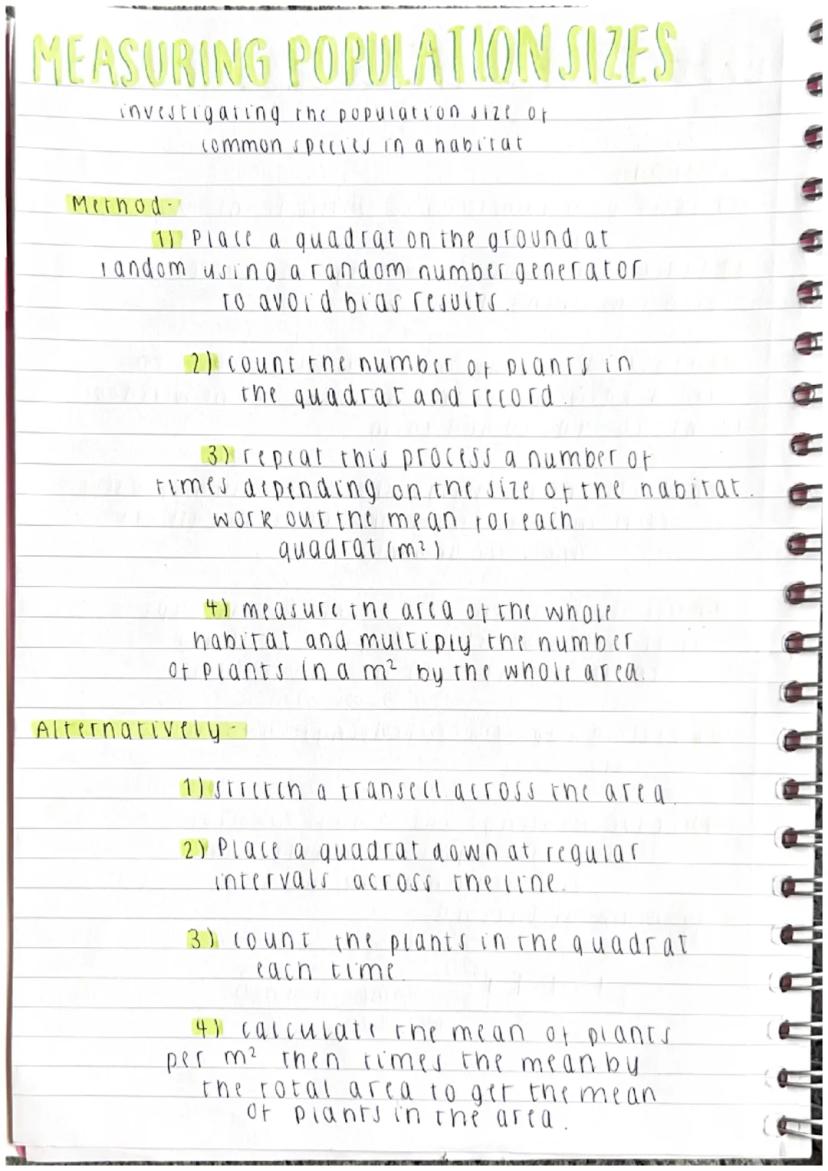 MEASURING POPULATION SIZES
investigating the population size of
common species in a habitat
Method-
1) Place a quadrat on the ground at
random using a random number generator
to avoid bias results.
2) count the number of plants in
the quadrat and record.
3) repeat this process a number of
times depending on the size of the habitat.
work out the mean for each
quadrat (m²)
4) measure the area of the whole
habitat and multiply the number
of plants in a m² by the whole area.
Alternatively-
1) stretch a transect across the area.
2) Place a quadrat down at regular
intervals across the line.
3) count the plants in the quadrat
each time.
4) calculate the mean of plants
per m² then times the mean by
the total area to get the mean
of plants in the area.